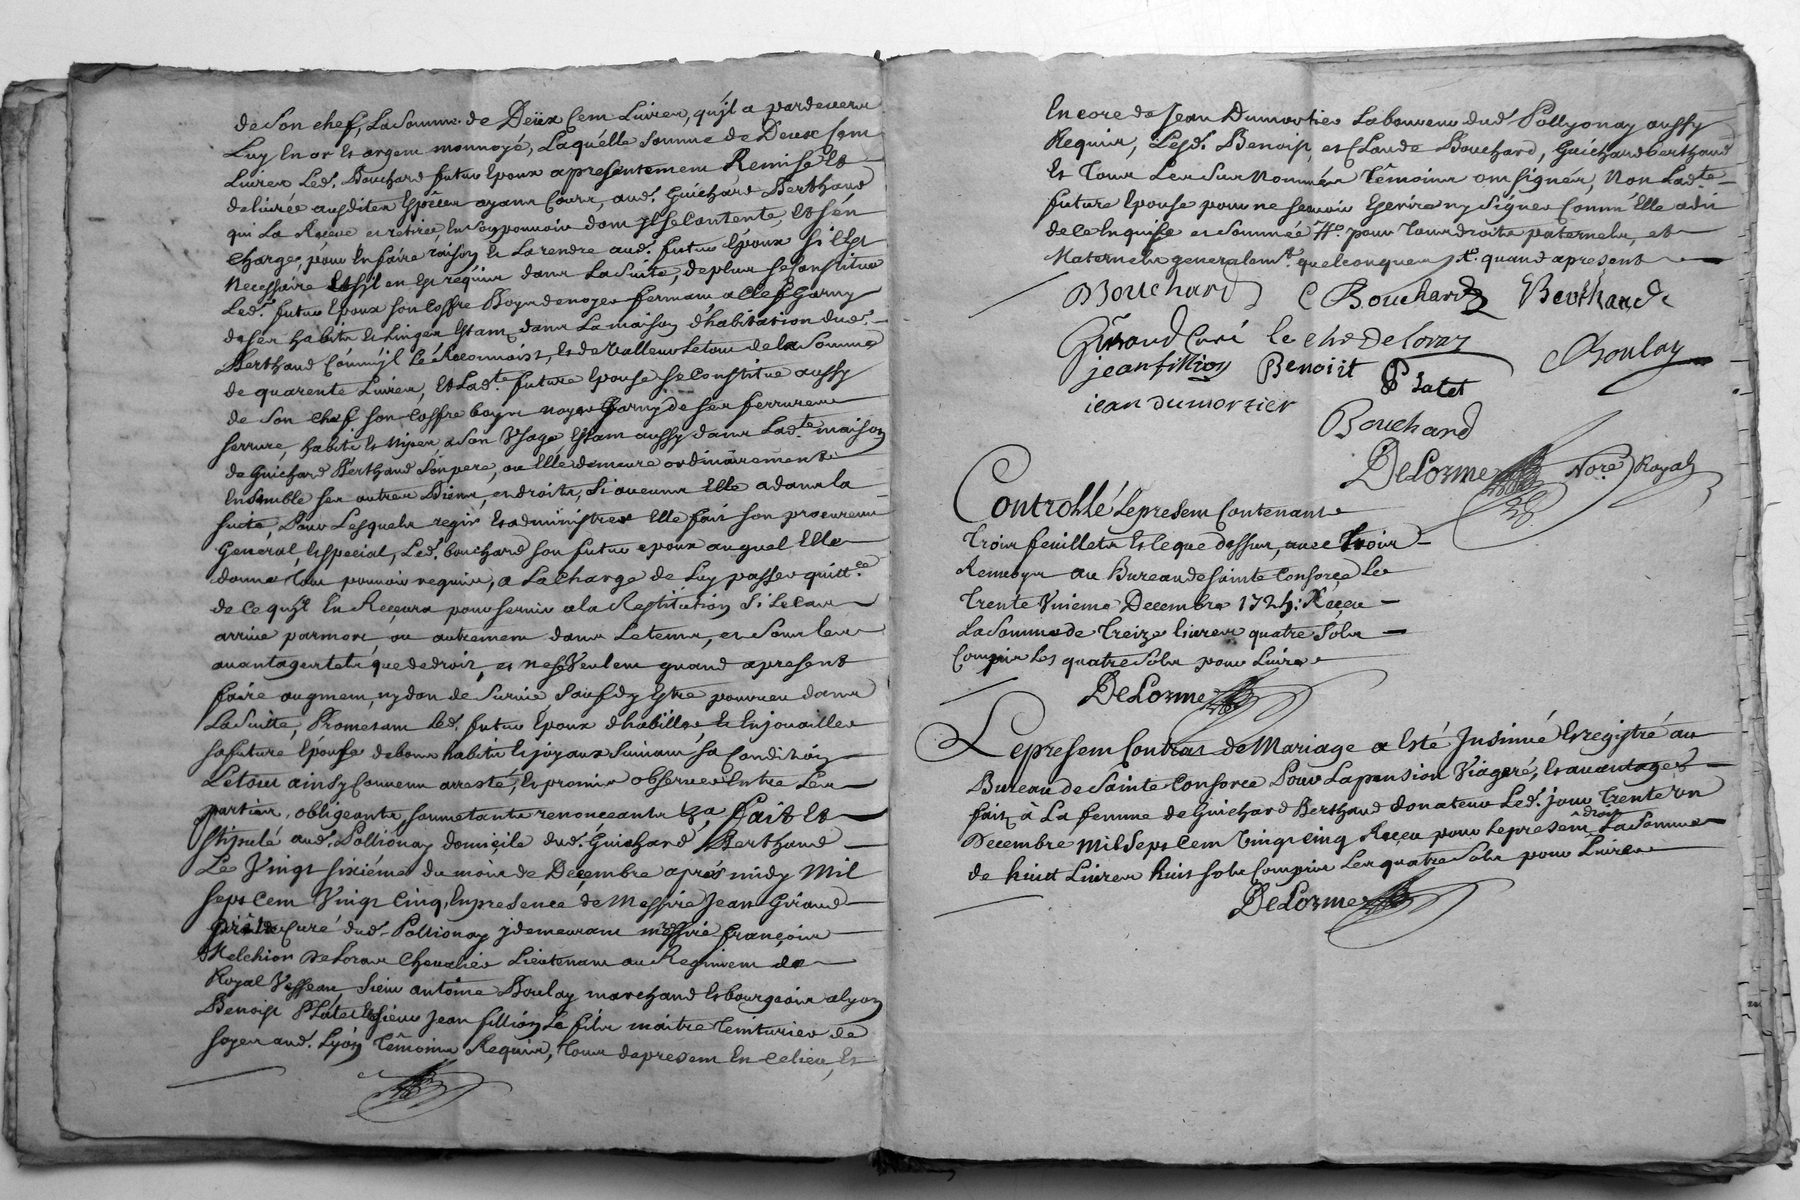 de Son chef, La Somme de Deüx Cent Livres, qu'jl a pardevers
Luy En or Et argent monnoyé, Laquélle Somme de Deux Cent
Livres Led. Bouchard futur Epoux a presentement Remise Et
delivrée ausdites Espêces ayant Cours, aud. Guichard Berthaud
qui La Reçeue et retirée En Son pouvoir dont jl Se Contente, Et S'én
Charge, pour En faire raison Et La rendre aud. futur Epoux Si Est
Necessaire Et S'il en Est réquis dans La Suite, deplus Se Constitue
Led. futur Epoux Son Coffre Boy de noyer fermant a Clef Garny
de Ses habits Et Linges Estant dans La maison d'habitation dud.
Berthaud Comm'jl Lé Reconnoist, Et de Valleur Le tout de la Somme
de quarente Livres, Et Lad.te future Epouse Se Constitue aussy
de Son Chef Son Coffre boy noyer Garny de Ses ferrures
Serrure, habits Et Nipes a Son Usage Estant aussy dans Lad.te maison
de Guichard Berthaud Son pere, ou Elle demeure ordinairement
Ensemble Ses autres Biens, et droits, Si aucuns Elle a dans la
Suite, Pour Lesquels regir Et administrer Elle fait Son procureur
Général, Et Special, Led. bouchard Son futur epoux auquel Elle
donne Tout pouvoir requis, a La Charge de Luy passer quitt.ce
de Ce qu'jl En Reçevra pour Servir a la Restitution Si Le Cas
arrive par mort ou autrement dans Le tems, et Sous Les
avantages tels que de droit, et ne Se Veulent quand a present
faire augment, ny don de Survie, Sauf d'y Estre pourveu dans
La Suitte, Prometant Led. futur Epoux d'habiller Et Enjouailler
Sa future Epouse de bons habits Et joyaux Suivant Sa Condition
Le tout ainsy Convenu arresté, Et promis observer Entre Les
parties, obligeants Soumetants renonceants &a Fait Et
Stipulé aud. Pollionay domicile dud. Guichard Berthaud
Le Vingt Sixiéme du mois de Decembre aprés midy Mil
Sept Cent Vingt Cinq, En presence de Messire Jean Giraud
prêtre Curé dud. Pollionay y demeurant messire françois
Melchior De Loras Chevalier Lieutenant au Regiment de
Royal Vesseau Sieur antoine Boulay marchand Et bourgeois a Lyon
Benoist Platet Et Sieur Jean fillion Le fils maitre Teinturier de
Soyes aud. Lyon Témoins Requis, Tous de present En Ce lieu, Et
Encore de Jean Dumortier Laboureur dud. Pollyonay aussy
Requis, Lesd. Benoist, et Claude Bouchard, Guichard berthaud
Et Tous Les Susnommés Témoins ont Signés, Non Lad.te
future Epouse pour ne Scavoir Escrire ny Signer Comm'Elle a dit
de Ce Enquise et Sommée pour Tous droits paternels, et
Maternels generalem.t quelconques quand a present
Bouchard C Bouchard Berthaud
Giraud Curé le ch.r De Loras
Boulay
jean fillion Benoist Platet
jean dumortier
Bouchard
DeLorme No.re Royal
Controllé Le present Contenant
Trois feuillets Et Ce que dessus, avec Trois
Renvoys au Bureau de Sainte Consorçe Le
Trente Unieme Decembre 1725: Reçeu
La Somme de Treize Livres quatre Sols
Compris Les quatre Sols pour Livre
DeLorme
Le present Contrat de Mariage a Esté Insinué Enregistré au
Bureau de Sainte Consorce Pour La pension Viageré, Et avantages
fait à La femme de Guichard Berthaud donateur Led. jour Trente Un
Decembre Mil Sept Cent Vingt Cinq Receu pour Le present droit La Somme
de huitt Livres huit Sols Compris Les quatre Sols pour Livre
DeLorme